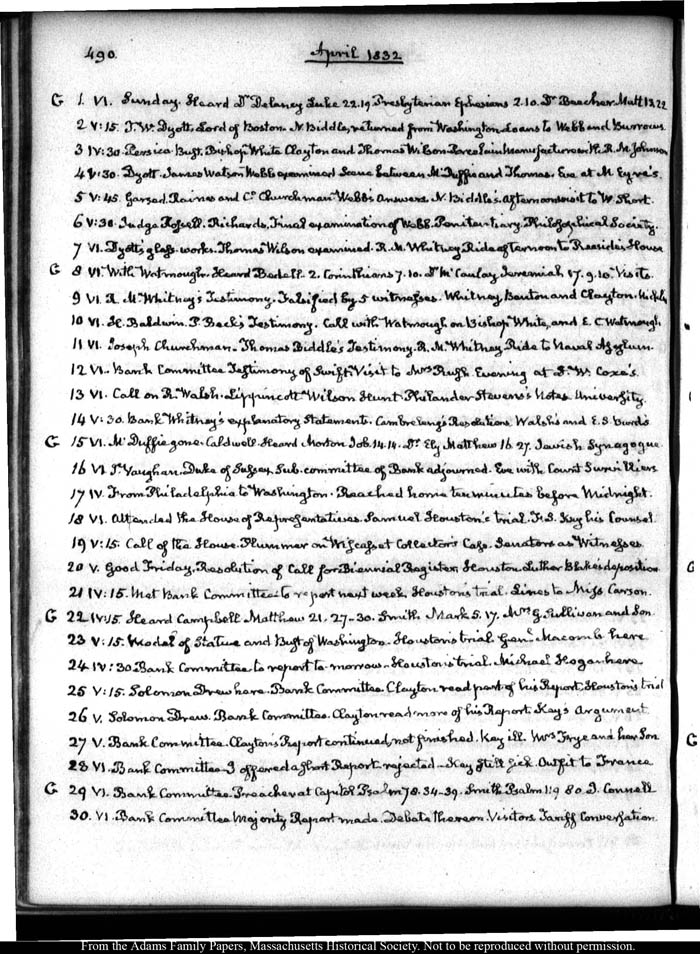 490. April 1832
G 1. VI. Sunday. Heard Dr Delancey Luke 22.19 Presbyterian Ephesians 2.10. Dr Beecher Matt 13.22
2 V:15. T. W. Dyott, Lord of Boston. N Biddle, returned from Washington Loans to Webb and Burrows
3 IV:30. Persico Bust, Bishop White Clayton and Thomas Wilson Porcelain Manufacturer W. R. M Johnson
4 V:30. Dyott. James Watson Webb examined Scene between McDuffie and Thomas. Eve at M Eyre's.
5 V:45. Garsed. Raines and Cn Churchman Webb's Answers. N. Biddle's. afternoon visit to W. Short.
6 V:30. Judge Rossell. Richards, Final examination of Webb. Penitentiary. Philosophical Society.
7 VI. Dyott's glass works. Thomas Wilson examined. R. M. Whitney Ride afternoon to Peasider House
G 8 VI. With Watmough. Heard Bedell. 2. Corinthians 7.10. Dr McCaulay Jeremiah 17. 9.10. Visits.
9 VI. R. M. Whitney's Testimony. Falsified by 5 witnesses. Whitney, Benton and Clayton.
10 VI. H. Baldwin. P. Beck's Testimony. Call with Watmough on Bishop White, and E. C Watmough
11 VI. Joseph Churchman. Thomas Biddle's Testimony. R. M. Whitney Ride to Naval Asylum.
12 VI. Bank Committee Testimony of Swift. Visit to Mrs Rush. Evening at J. W. Coxe's.
13 VI. Call on R. Walsh. Lippincott Wilson Hunt. Philander Stevens's Notes. University.
14 V:30. Bank Whitney's explanatory Statements. Cambreleng's Resolutions Walsh's and E. S. Burd's
G 15 VI. McDuffie gone. Caldwell. Heard Morton Job. 14.14. Dr. Ely Matthew 16. 27. Jewish Synagogue
16 VI Jn Vaughan. Duke of Sussex. Sub. committee of Bank adjourned. Eve with Count Survilliers
17 IV. From Philadelphia to Washington. Reached home ten minutes before Midnight.
18 VI. Attended the House of Representatives. Samuel Houston's trial. F. S. Key his Counsel.
19 V:15. Call of the House. Plummer on Wiscasset Collector's Case. Senators as Witnesses
20 V. Good Friday. Resolution of Call for Biennial Register. Houston. Luther Blake's deposition
21 IV:15. Met Bank Committee to report next week. Houston's trial. Lines to Miss Corson.
G 22 IV:15. Heard Campbell Matthew 21. 27-30. Smith. Mark 5. 17. Mrs G. Sullivan and Son
23 V:15. Model of Statue and Bust of Washington. Houston's trial. Genl Macomb here
24 IV:30. Bank Committee to report to morrow. Houston's trial. Michael Hogan here
25 V:15. Solomon Drew here. Bank Committee. Clayton read part of his Report. Houston's trial
26 V. Solomon Drew. Bank Committee. Clayton read more of his Report. Key's Argument
27 V. Bank Committee. Clayton's Report continued, not finished. Key ill. Mrs Frye and her Son
28 VI. Bank Committee. I offered a short Report rejected. Key still sick. Outfit to France
G 29 VI. Bank Committee. Preacher at Capitol Psalm 78. 34-39. Smith Psalm 119 80. J. Connell
30. VI. Bank Committee Majority Report made. Debate thereon. Visitors Tariff Conversation.
G
G
From the Adams Family Papers, Massachusetts Historical Society. Not to be reproduced without permission.